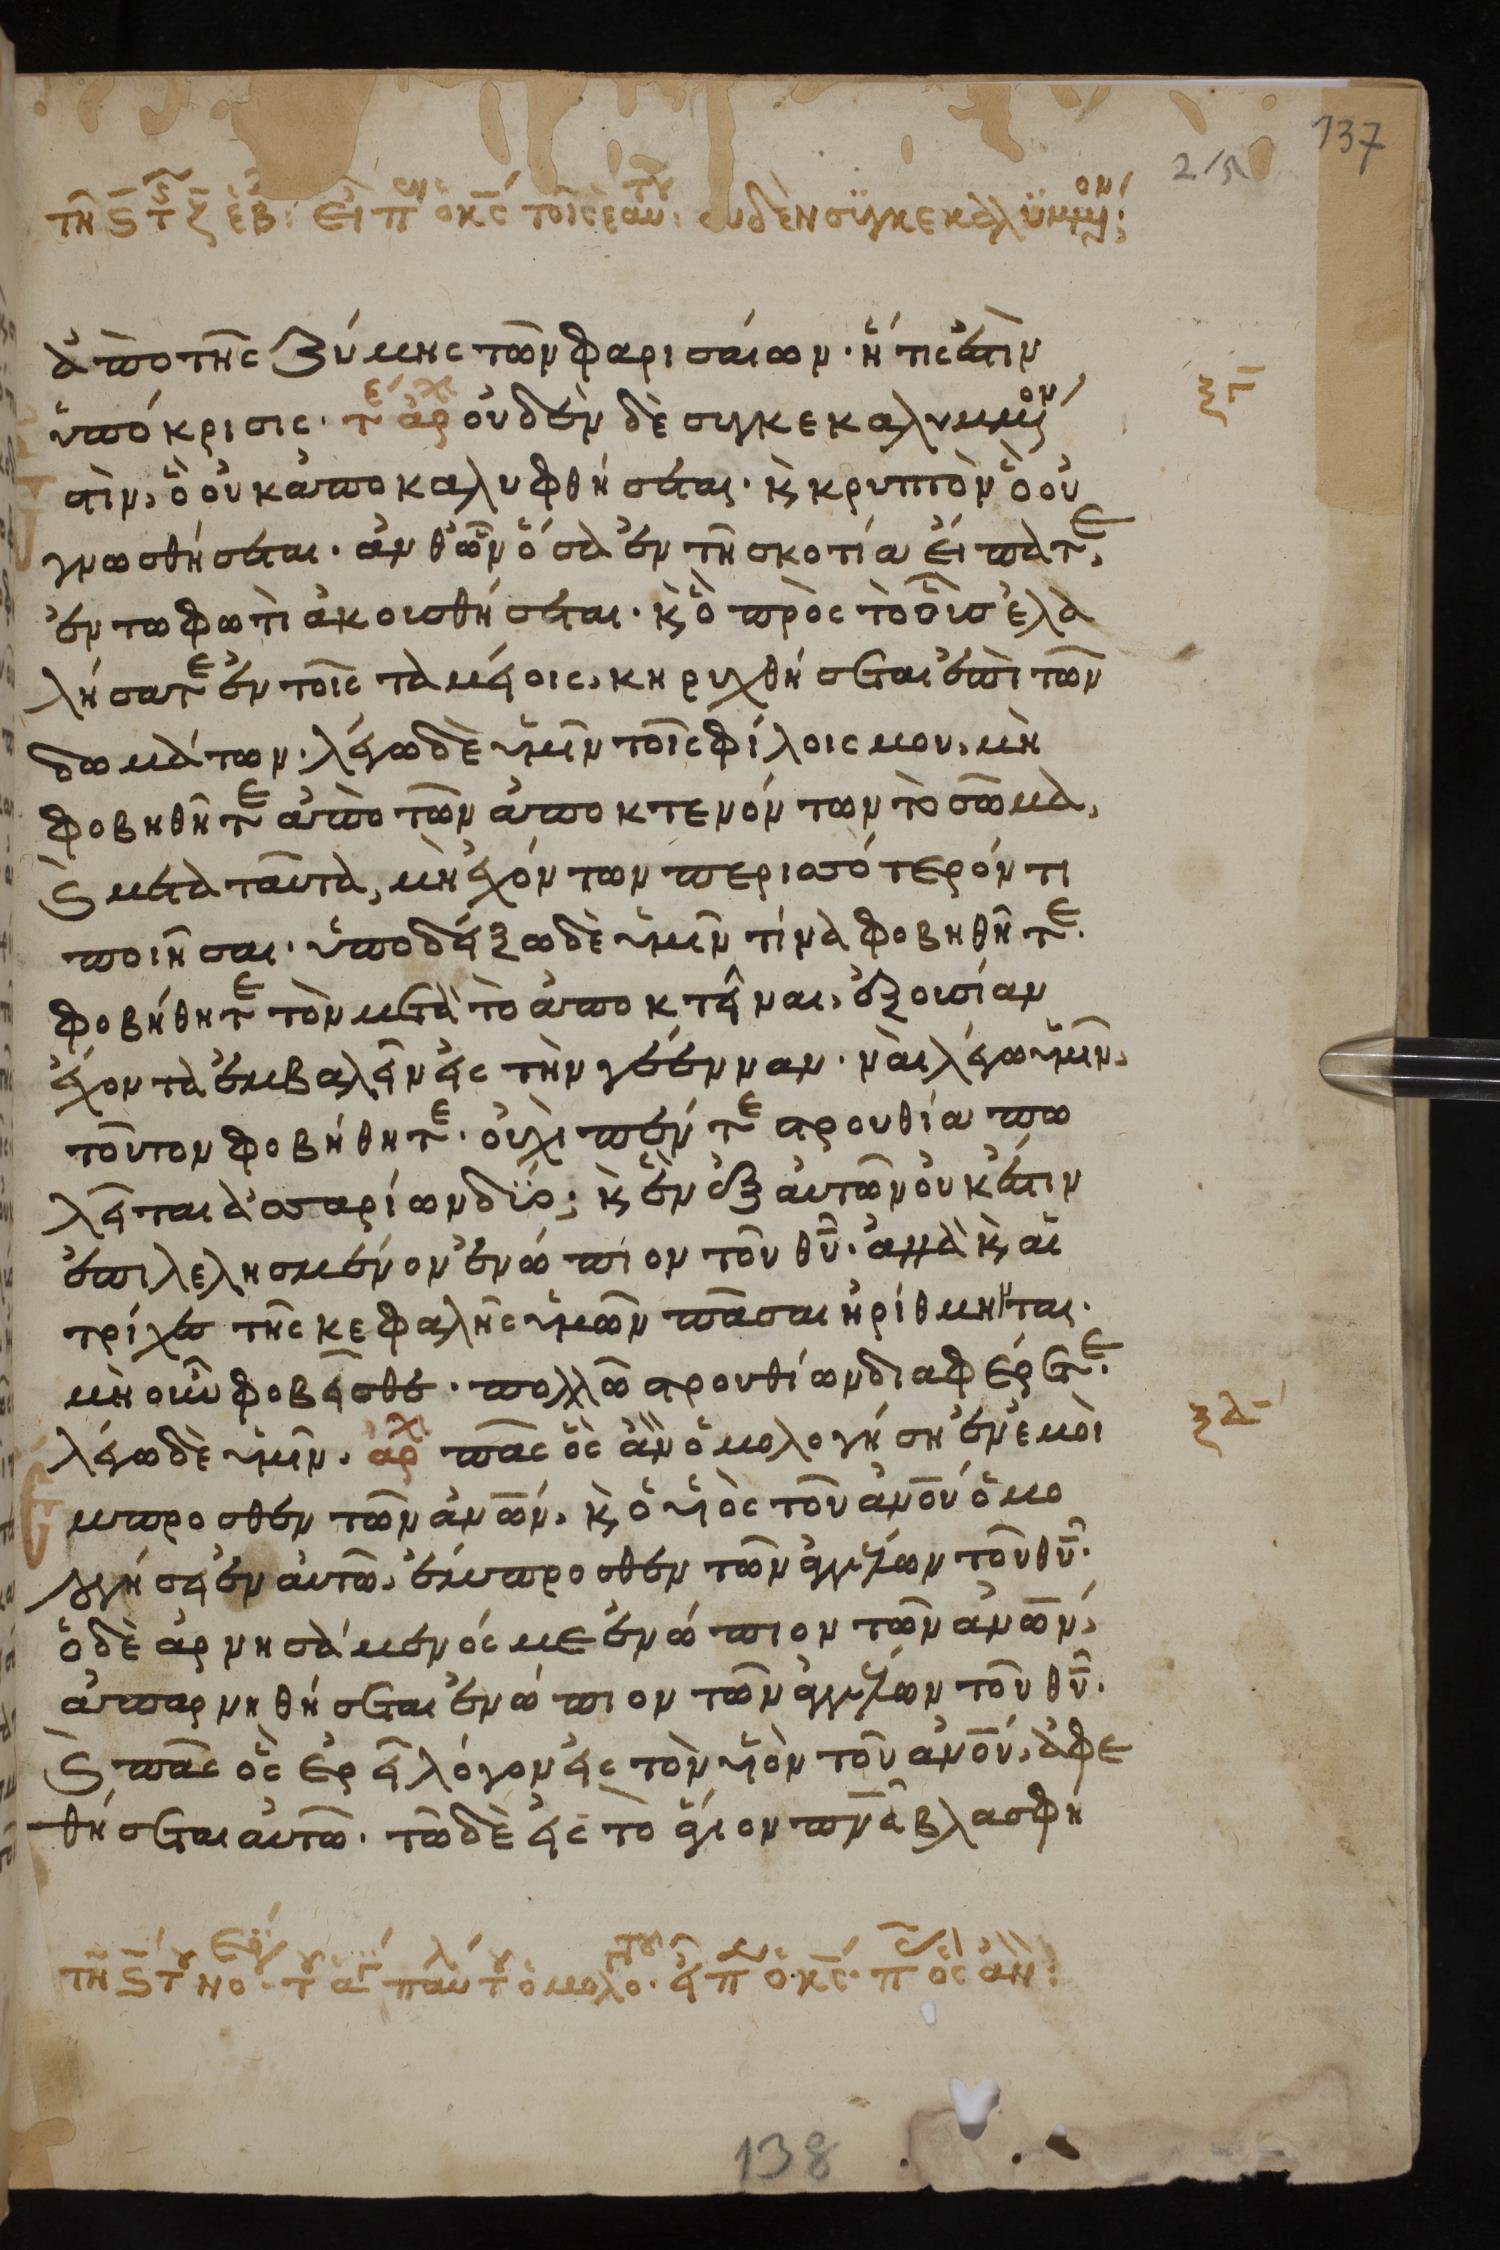 137
τῆ ϛ τῆς ζ ἑβ: εἶπ ὁ κς τοῖς ἑαυτοῦ: οὐδὲν συγκεκαλυμμένον:
ἀπο τῆς ζύμης τῶν φαρισαίων· ἥτις ἐστὶν
ὑπόκρισις· τέ ἀρχ οὐδὲν δὲ συγκεκαλυμμένον
στὶν, ὃ οὐκ ἀποκαλυφθήσεται· κ κρυπτὸν ὃ οὐ
γνωσθήσεται· ἀνθ ὧν ὅσα ἐν τῆ σκοτία εἴπατε,
ἐν τω φωτὶ ἀκουσθήσεται· κ ὃ πρὸς τὸ οὖς ἐλα
λήσατε ἐν τοῖς ταμείοις, κηρυχθήσεται ἐπὶ τῶν
δωμάτων· λέγω δὲ ὑμῖν τοῖς φίλοις μου, μὴ
φοβηθῆτε ἀπὸ τῶν ἀποκτενόντων τὸ σῶμα,
κ μετὰ ταῦτα, μὴ ἐχόντων περισσότερόν τι
ποιῆσαι· ὑποδείξω δὲ ὑμῖν τίνα φοβηθῆτε·
φοβήθητε τὸν μετὰ τὸ ἀποκτεῖναι, ἐξουσίαν
ἔχοντα ἐμβαλεῖν εἰς τὴν γέενναν· ναι λέγω ὑμῖν,
τοῦτον φοβήθητε· οὐχὶ πέντε στρουθία πω
λεῖται ἀσσαρίων δύο; κ ἓν ἐξ αὐτῶν οὐκ ἔστιν
ἐπιλελησμένον ἐνώπιον τοῦ θυ· ἀλλὰ κ αἱ
τρίχες τῆς κεφαλῆς ὑμῶν πᾶσαι ἠρίθμηνται·
μὴ οὖν φοβεῖσθε· πολλῶ στρουθίων διαφέρετε·
λέγω δὲ ὑμῖν· ἀρχ πᾶς ὃς ἂν ὁμολογήση ἐν ἐμοὶ
μπροσθεν τῶν ἀνων, κ ὁ υἱὸς τοῦ ἀνου ὁμο
λογήσει ἐν αὐτῶ, ἔμπροσθεν τῶν ἀγγέλων τοῦ θυ·
ὁ δὲ ἀρνησάμενός με ἐνώπιον τῶν ἀνων,
ἀπαρνηθήσεται ἐνώπιον τῶν ἀγγέλων τοῦ θυ·
κ πᾶς ὃς ἐρεῖ λόγον εἰς τὸν υἱὸν τοῦ ἀνου, ἀφε
θήσεται αὐτῶ· τῶ δὲ εἰς τὸ ἅγιον πνα βλασφη
138